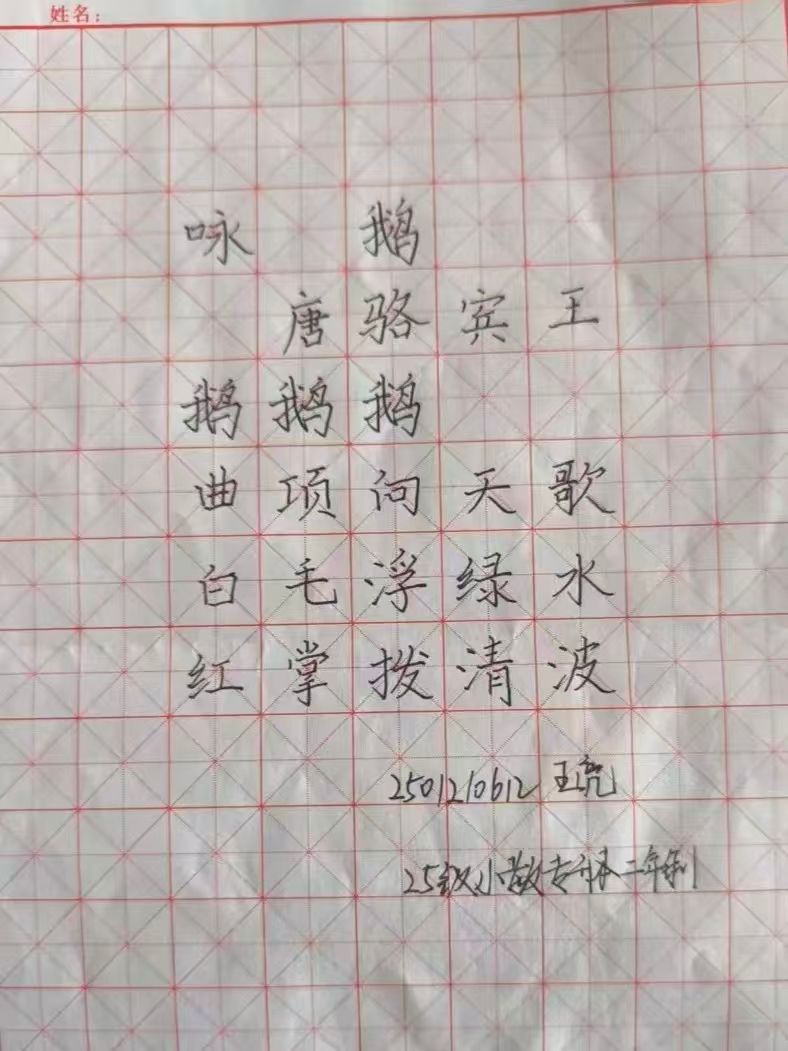 姓名：
咏 鹅
唐 骆 宾 王
鹅 鹅 鹅
曲 项 向 天 歌
白 毛 浮 绿 水
红 掌 拨 清 波
2501210612 王亮
25级小教专升本二年制